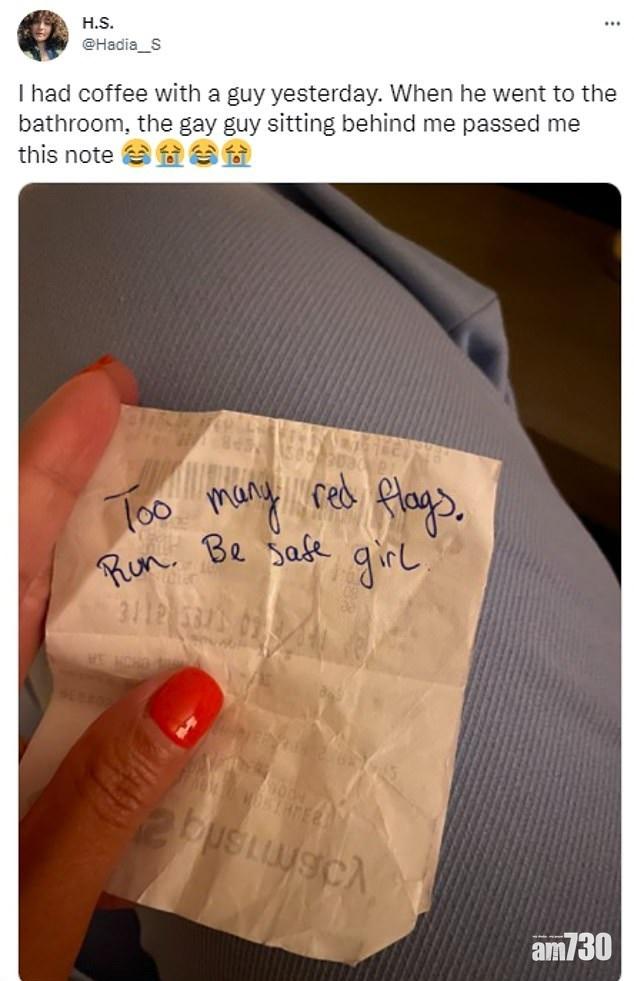 H.S.
@Hadia__S
I had coffee with a guy yesterday. When he went to the
bathroom, the gay guy sitting behind me passed me
this note 😂😭😂😭
Too many red flags.
Run. Be safe girl.
pharmacy
am730